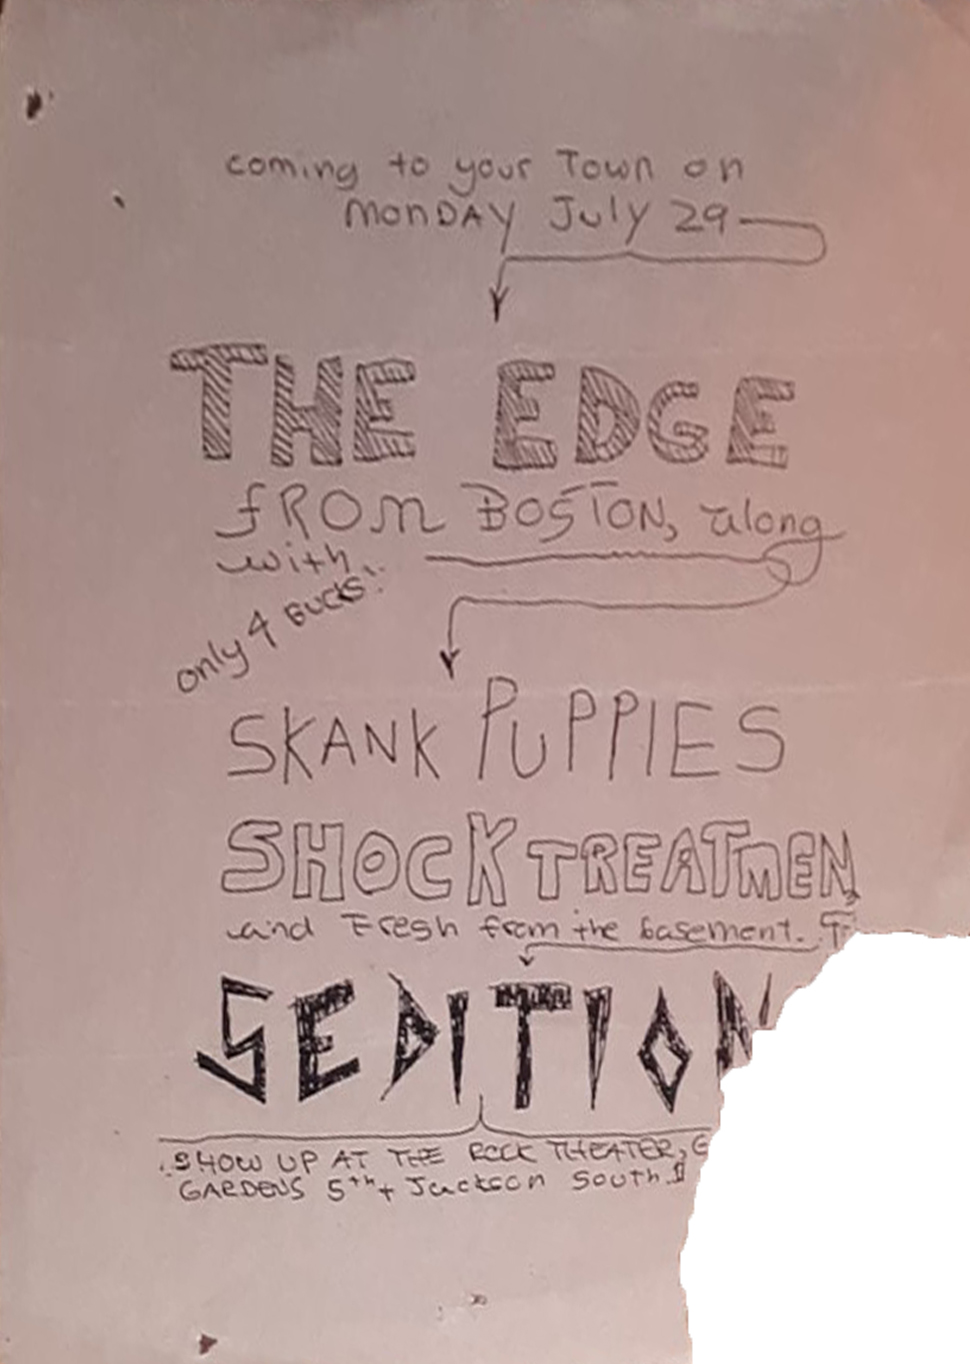 coming to your Town on
MONDAY July 29
THE EDGE
fROM BOSTON, along
with..
only 4 Bucks!
SKANK PUPPIES
SHOCK TREATMEN
and Fresh from the basement.
SEDITION
SHOW UP AT THE ROCK THEATER,
GARDENS 5th + Jackson South